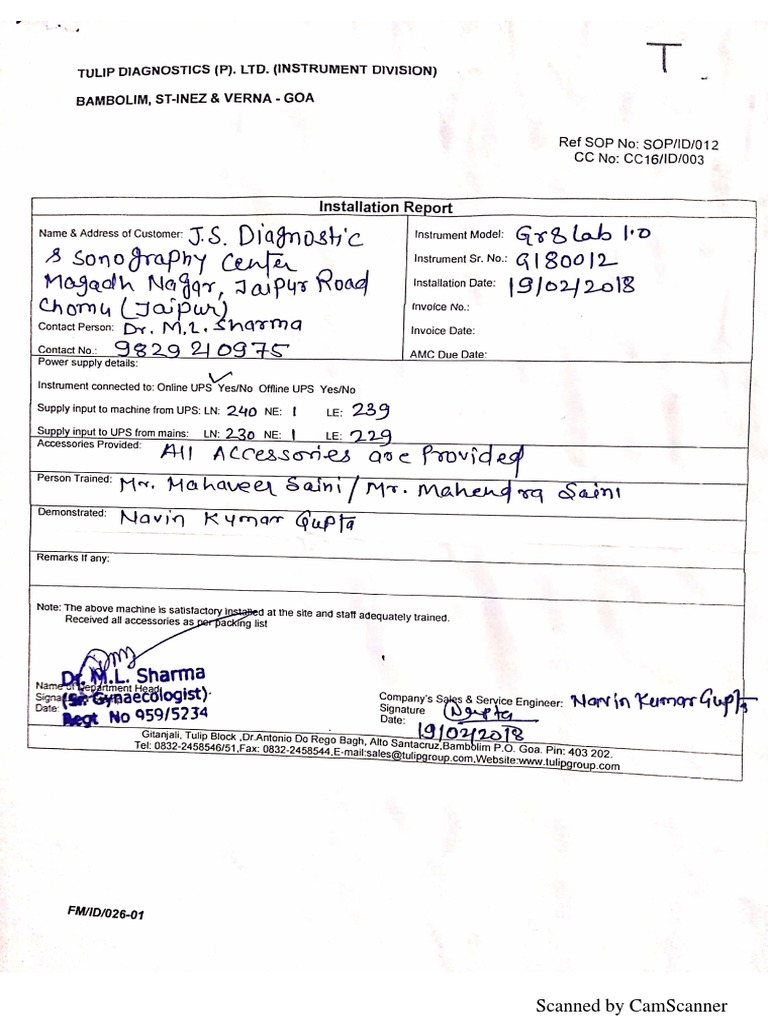 T
TULIP DIAGNOSTICS (P). LTD. (INSTRUMENT DIVISION)
BAMBOLIM, ST-INEZ & VERNA - GOA
Ref SOP No: SOP/ID/012
CC No: CC16/ID/003
Installation Report
Name & Address of Customer: J.S. Diagnostic
& Sonography Center
Magadh Nagar, Jaipur Road
Chomu (Jaipur)
Contact Person: Dr. M.L. Sharma
Contact No.: 9829210975
Instrument Model: Gr8 Lab 1.0
Instrument Sr. No.: G180012
Installation Date: 19/02/2018
Invoice No.:
Invoice Date:
AMC Due Date:
Power supply details:
Instrument connected to: Online UPS Yes/No Offline UPS Yes/No
Supply input to machine from UPS: LN: 240 NE: 1 LE: 239
Supply input to UPS from mains: LN: 230 NE: 1 LE: 229
Accessories Provided: All Accessories are Provided
Person Trained: Mr. Mahaveer Saini / Mr. Mahendra Saini
Demonstrated: Navin Kumar Gupta
Remarks If any:
Note: The above machine is satisfactory installed at the site and staff adequately trained.
Received all accessories as per packing list
Dr. M.L. Sharma
Name of Department Head
(Sr. Gynaecologist)
Date:
Regt No 959/5234
Company's Sales & Service Engineer: Navin Kumar Gupta
Signature Ngupta
Date: 19/02/2018
Gitanjali, Tulip Block ,Dr.Antonio Do Rego Bagh, Alto Santacruz,Bambolim P.O. Goa. Pin: 403 202.
Tel: 0832-2458546/51,Fax: 0832-2458544,E-mail:sales@tulipgroup.com,Website:www.tulipgroup.com
FM/ID/026-01
Scanned by CamScanner